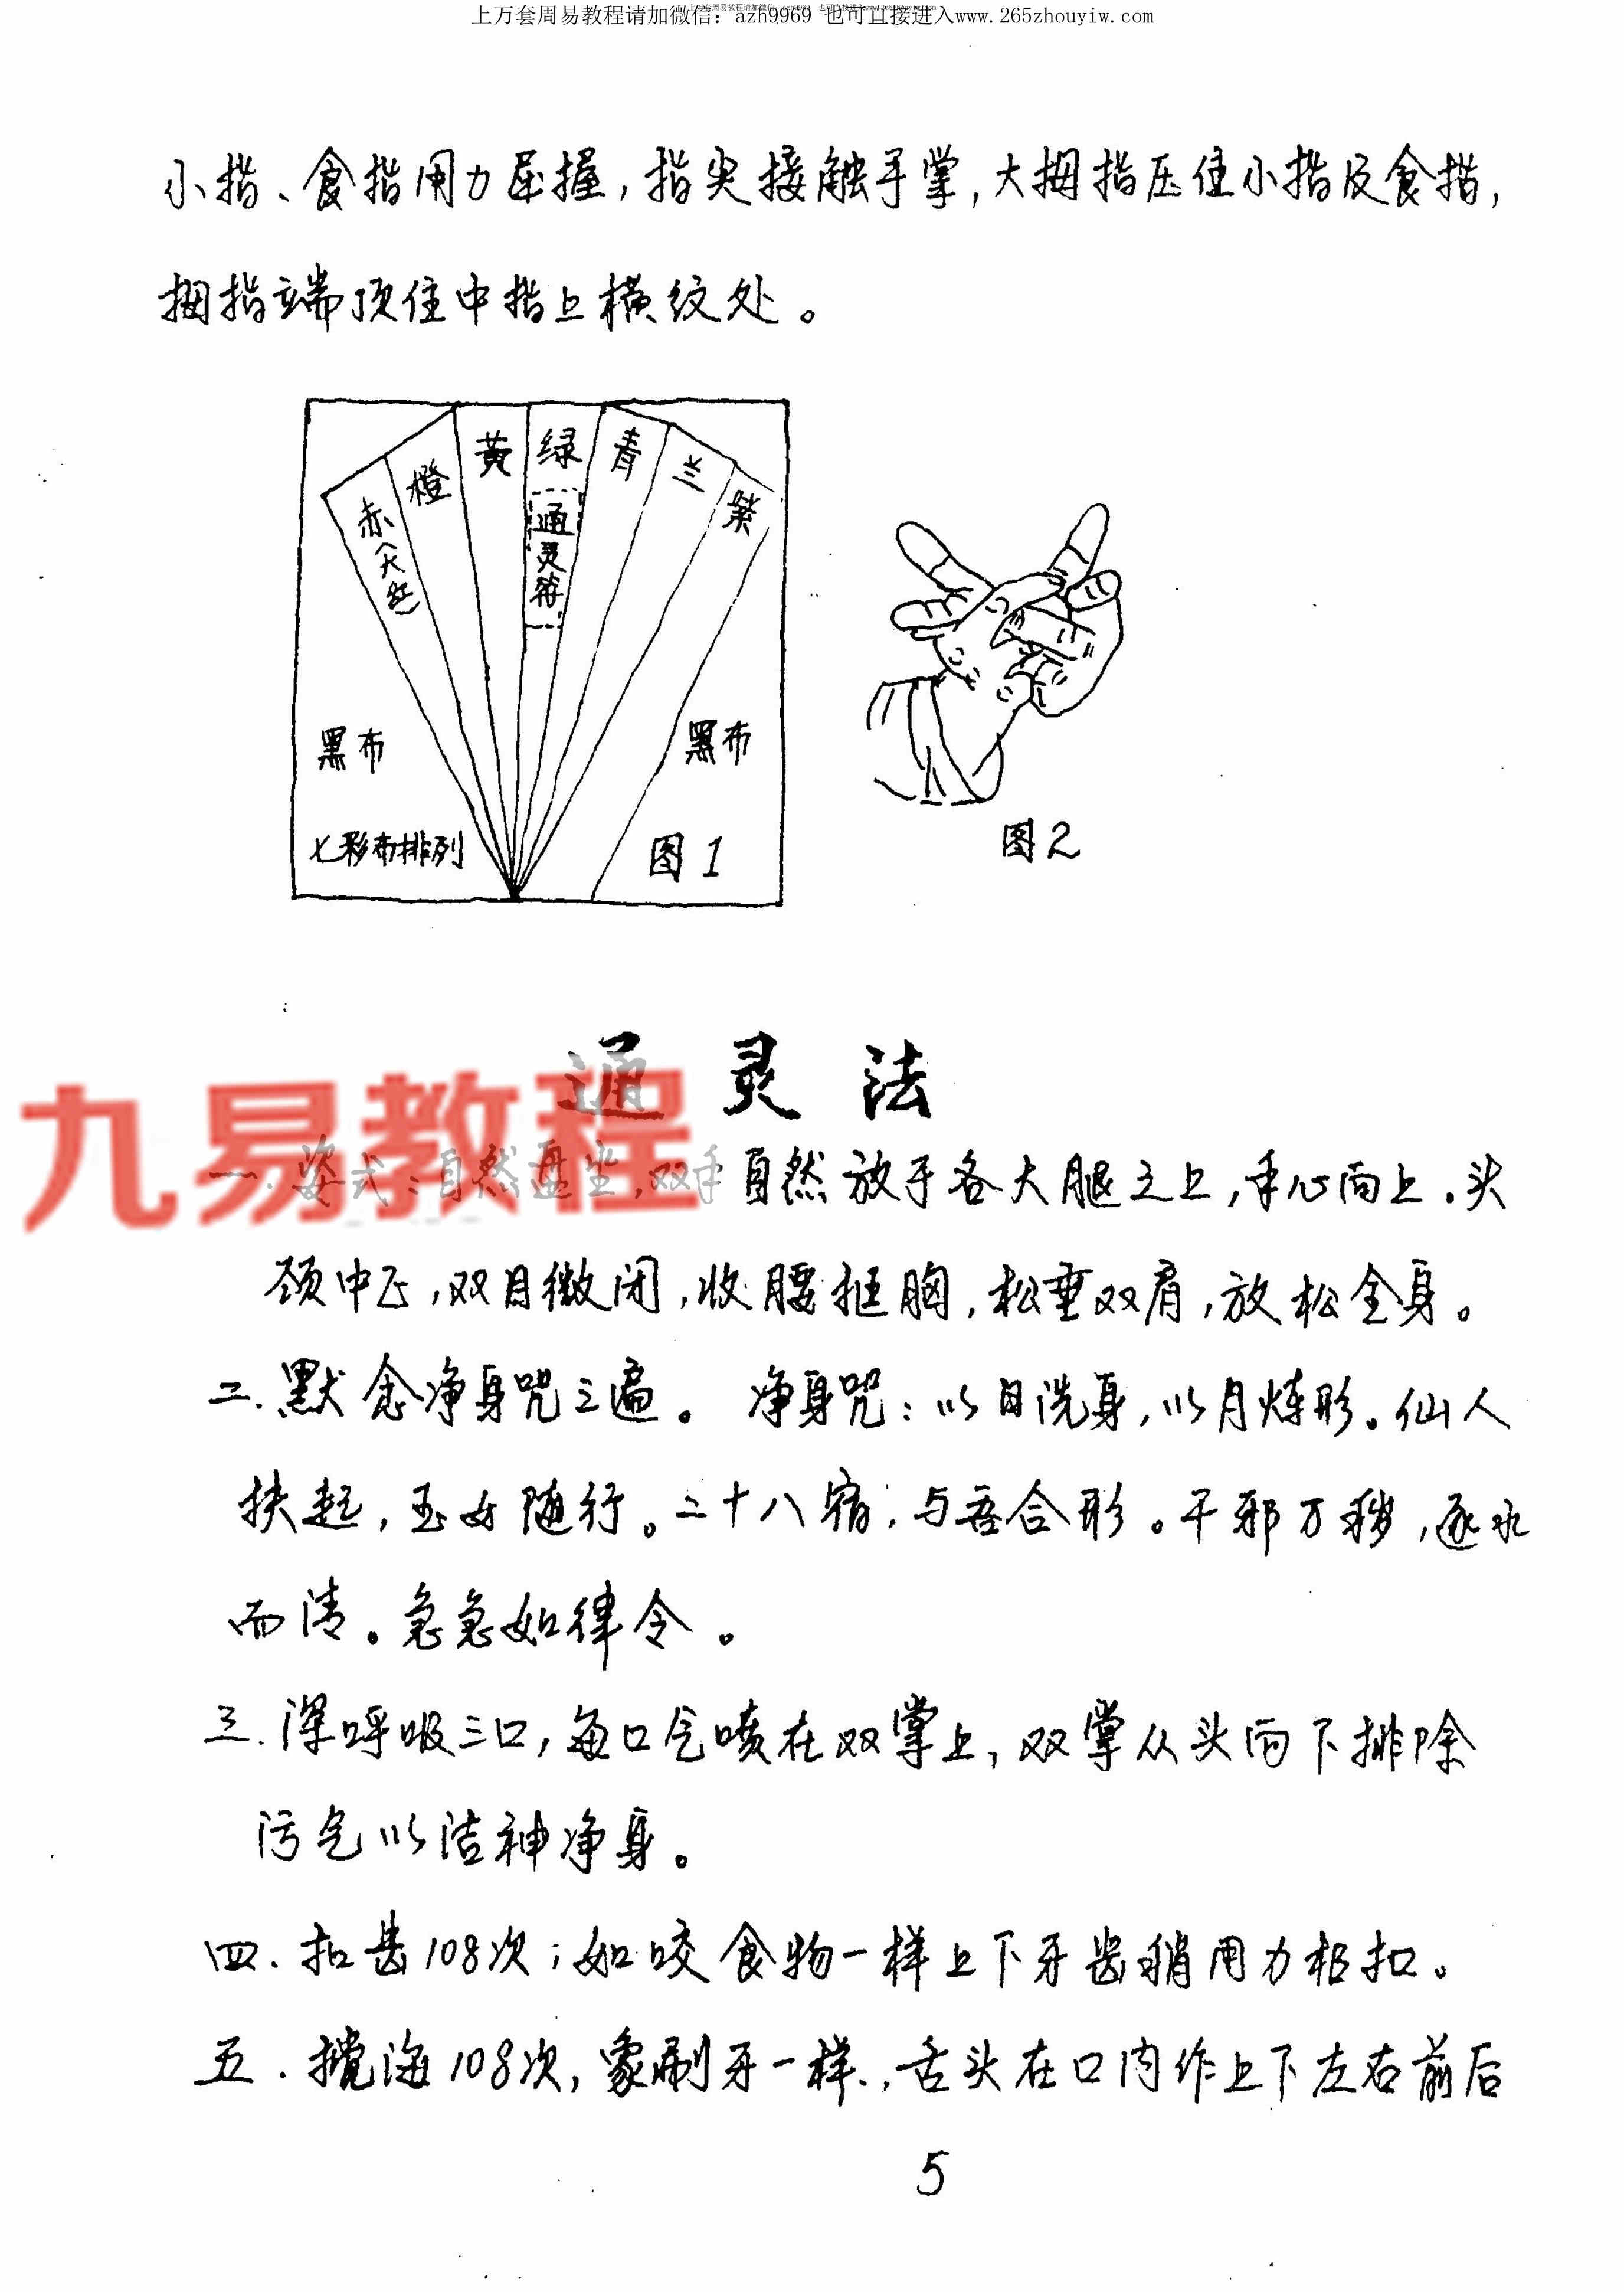 上万套周易教程请加微信：azh9969 也可直接进入www.265zhouyiw.com
小指、食指用力屈握，指尖接触手掌，大拇指压住小指及食指，
拇指端顶住中指上横纹处。
赤(大红)
橙
黄
绿
青
兰
紫
通灵符
黑布
黑布
七彩布排列
图1
图2
通灵法
九易教程
一.姿式：自然盘坐，双手自然放于各大腿之上，手心向上．头
颈中正，双目微闭，收腰挺胸，松垂双肩，放松全身。
二.默念净身咒三遍。净身咒：以日洗身，以月炼形。仙人
扶起，玉女随行。二十八宿，与吾合形。千邪万秽，逐水
而清。急急如律令。
三.深呼吸三口，每口气喷在双掌上，双掌从头向下排除
污气以洁神净身。
四.扣齿108次；如咬食物一样上下牙齿稍用力相扣。
五.搅海108次，象刷牙一样，舌头在口内作上下左右前后
5